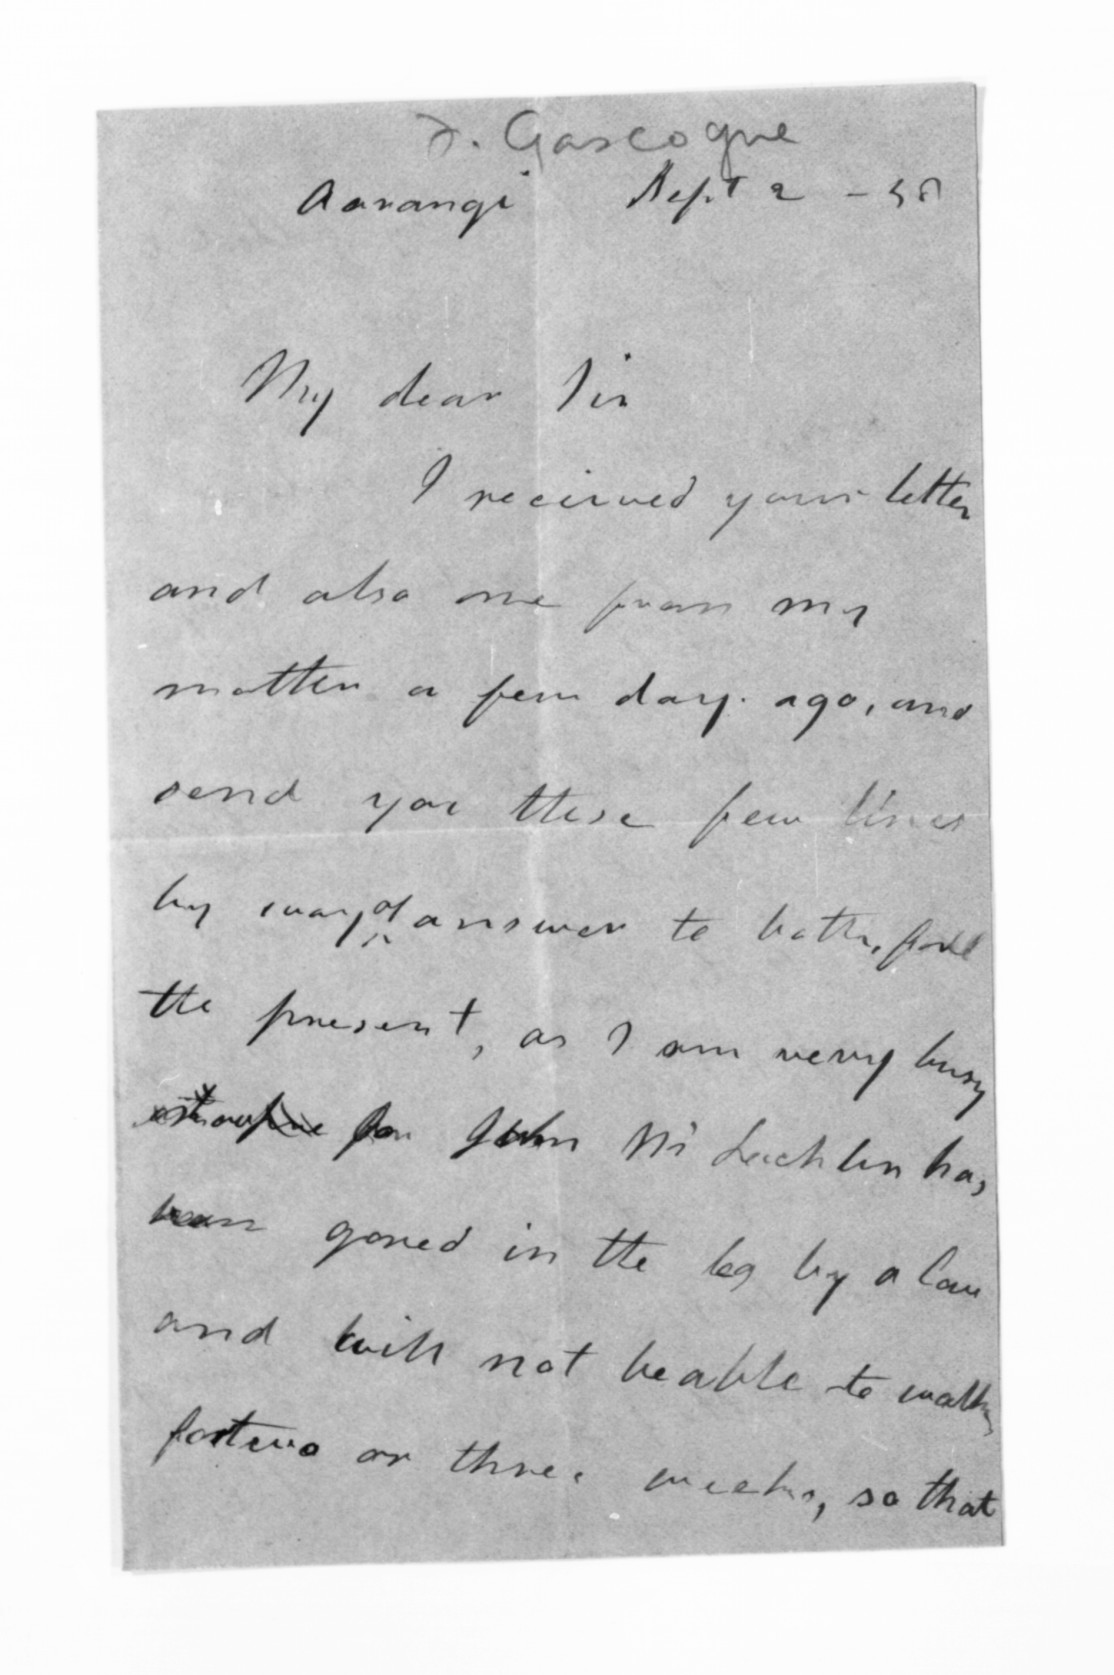 F. Gascogne
Aorangi Sept 2 - 58
My dear Sir
I received your letter
and also one from my
motter a few days ago, and
send you these few lines
by way of answer to both, for
the present, as I am very busy
for John Mc Lachlin has
been gored in the leg by a Cow
and will not be able to walk
for two or three weeks, so that